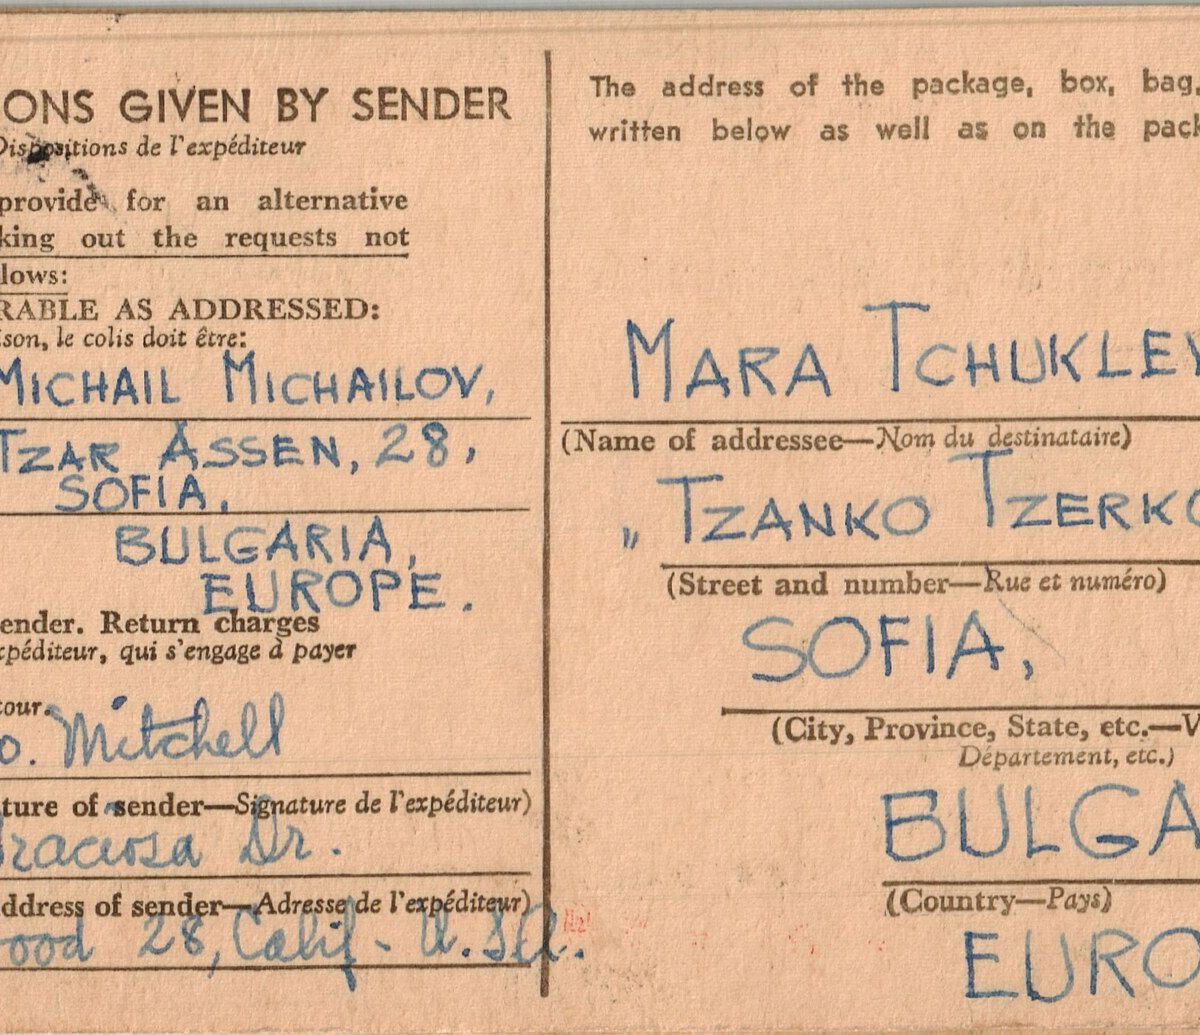 ONS GIVEN BY SENDER
Dispositions de l'expéditeur
provide for an alternative
king out the requests not
lows:
RABLE AS ADDRESSED:
ison, le colis doit être:
MICHAIL MICHAILOV,
TZAR ASSEN, 28,
SOFIA,
BULGARIA,
EUROPE.
ender. Return charges
xpéditeur, qui s'engage à payer
tour.
o. Mitchell
ture of sender—Signature de l'expéditeur)
Graciosa Dr.
ddress of sender—Adresse de l'expéditeur)
ood 28, Calif - U.S.A.
The address of the package, box, bag,
written below as well as on the pack
MARA TCHUKLEV
(Name of addressee—Nom du destinataire)
„ TZANKO TZERKO
(Street and number—Rue et numéro)
SOFIA,
(City, Province, State, etc.—V
Département, etc.)
BULGA
(Country—Pays)
EURO